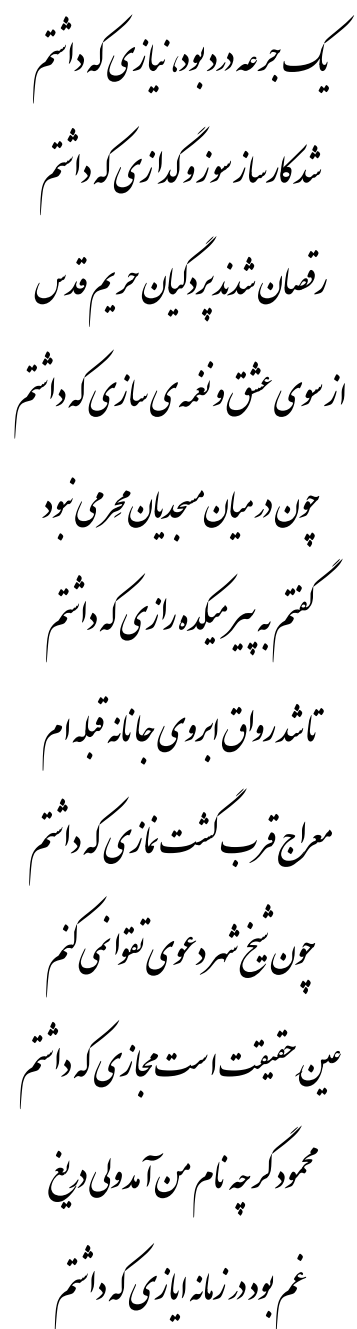 یک جرعه درد بود، نیازی که داشتم
شد کارساز سوز و گدازی که داشتم
رقصان شدند پردگیان حریم قدس
از سوی عشق و نغمه ی سازی که داشتم
چون در میان مسجدیان محرِمی نبود
گفتم به پیر میکده رازی که داشتم
تا شد رواق ابروی جانانه قبله ام
معراج قرب گشت نمازی که داشتم
چون شیخ شهر دعوی تقوا نمی کنم
عین حقیقت است مجازی که داشتم
محمود گرچه نام من آمد ولی دریغ
غم بود در زمانه ایازی که داشتم